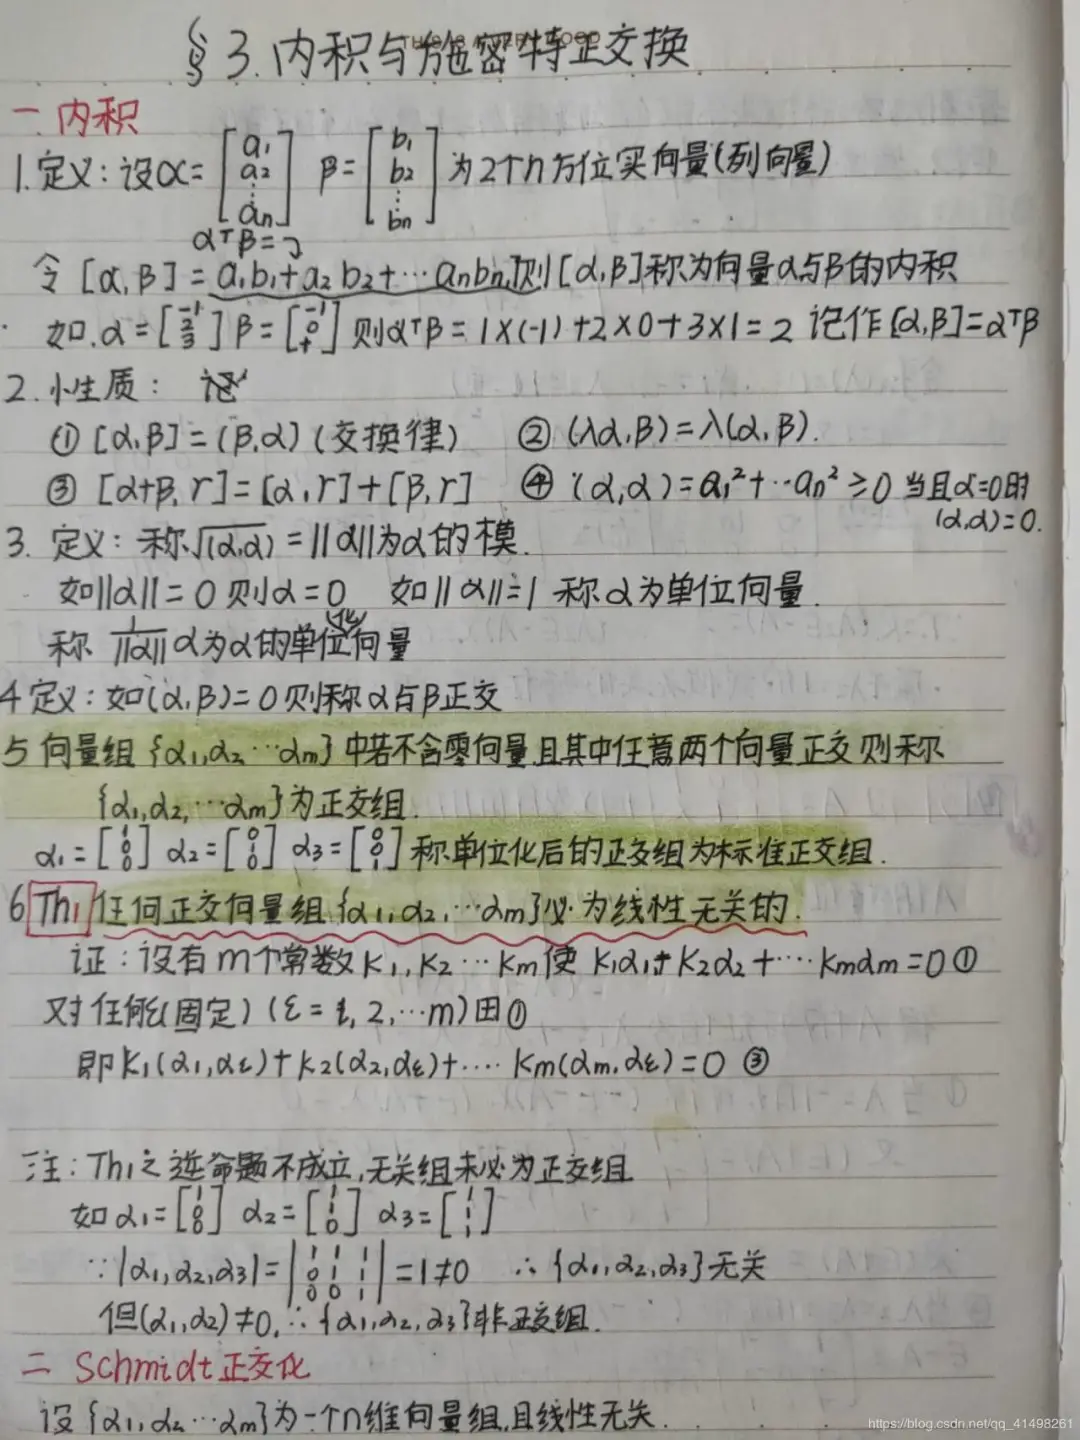 §3.内积与施密特正交换
一.内积
1.定义:设α=[a1 a2 ⋮ an] β=[b1 b2 ⋮ bn]为2个n方位实向量(列向量)
αᵀβ=
令[α,β]=a1b1+a2b2+⋯anbn,则[α,β]称为向量α与β的内积
如.α=[1 2 3] β=[-1 0 1] 则αᵀβ=1×(-1)+2×0+3×1=2 记作[α,β]=αᵀβ
2.小性质:
①[α,β]=(β,α)(交换律) ②(λα,β)=λ(α,β).
③[α+β,r]=[α,r]+[β,r] ④(α,α)=a1²+⋯an²≥0 当且α=0时
(α,α)=0.
3.定义:称√(α,α)=||α||为α的模.
如||α||=0则α=0 如||α||=1 称α为单位向量.
称 1/||α|| α为α的单位化向量
4定义:如(α,β)=0则称α与β正交
5向量组{α1,α2⋯αm}中若不含零向量,且其中任意两个向量正交则称
{α1,α2,⋯αm}为正交组.
α1=[1 0 0] α2=[0 1 0] α3=[0 0 1]称单位化后的正交组为标准正交组.
6 Th1 任何正交向量组{α1,α2,⋯αm}必为线性无关的.
证:设有m个常数K1,K2⋯Km使 K1α1+K2α2+⋯Kmαm=0①
对任何ε(固定)(ε=1,2,⋯m)由①
即K1(α1,αε)+K2(α2,αε)+⋯Km(αm,αε)=0 ③
注:Th1之逆命题不成立,无关组未必为正交组
如α1=[1 0 0] α2=[1 1 0] α3=[1 1 1]
∵|α1,α2,α3|=|1 1 1 0 1 1 0 0 1|=1≠0 ∴{α1,α2,α3}无关
但(α1,α2)≠0,∴{α1,α2,α3}非正交组.
二 Schmidt正交化
设{α1,α2⋯αm}为一个n维向量组,且线性无关.
https://blog.csdn.net/qq_41498261